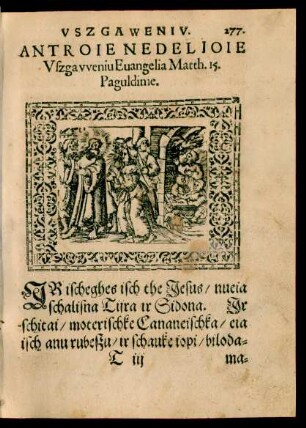 VSZGAWENIV. 277.
ANTROIE NEDELIOIE
Vſzgavveniu Euangelia Matth. 15.
Paguldime.
IR iſcheghes iſch the Jeſus / nueia
ſchaliſna Tijra ir Sidona. Jr
ſchitai / moteriſchke Cananeiſchka / eia
iſch anu rubeßu / ir ſchauke iopi / biloda-
T iij ma-